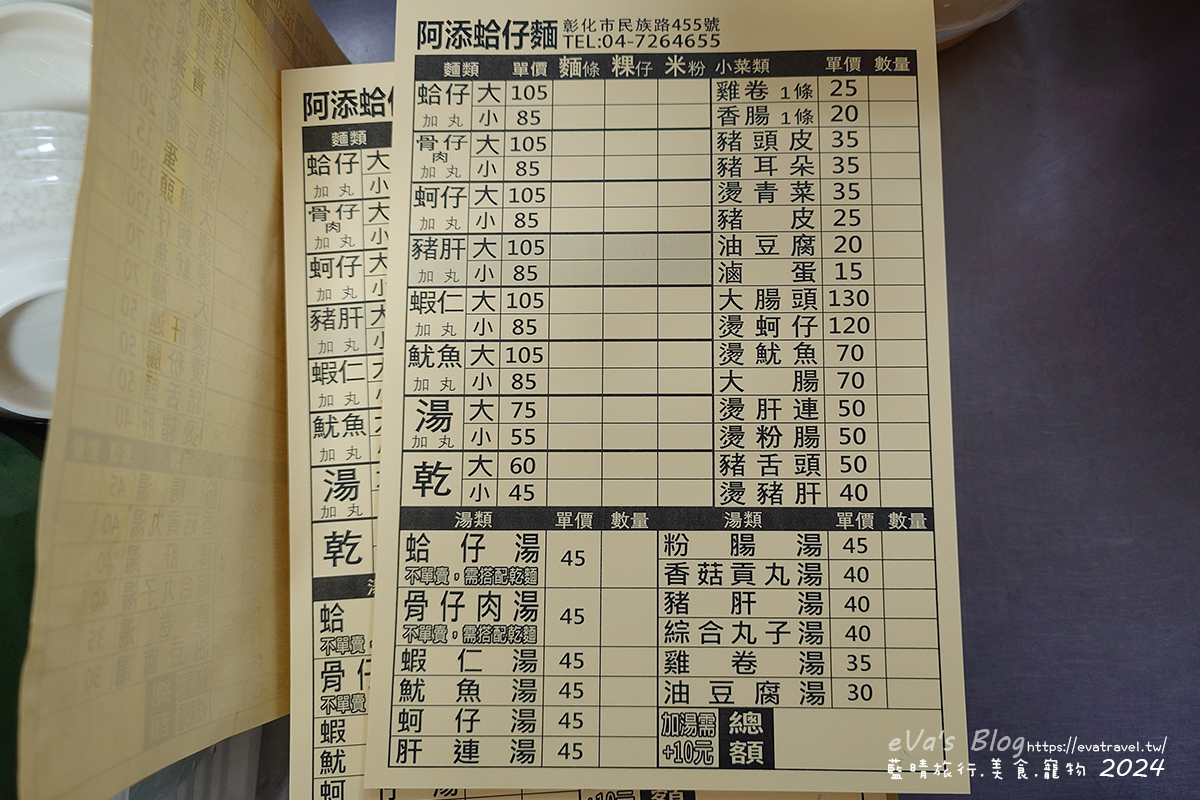 阿添蛤仔麵 彰化市民族路455號
TEL:04-7264655
麵類 單價 麵條 粿仔 米粉 小菜類 單價 數量
蛤仔 大 105 雞卷 1條 25
加丸 小 85 香腸 1條 20
骨仔肉 大 105 豬頭皮 35
加丸 小 85 豬耳朵 35
蚵仔 大 105 燙青菜 35
加丸 小 85 豬皮 25
豬肝 大 105 油豆腐 20
加丸 小 85 滷蛋 15
蝦仁 大 105 大腸頭 130
加丸 小 85 燙蚵仔 120
魷魚 大 105 燙魷魚 70
加丸 小 85 大腸 70
湯 大 75 燙肝連 50
加丸 小 55 燙粉腸 50
乾 大 60 豬舌頭 50
小 45 燙豬肝 40
湯類 單價 數量 湯類 單價 數量
蛤仔湯 45 粉腸湯 45
不單賣,需搭配乾麵 香菇貢丸湯 40
骨仔肉湯 45 豬肝湯 40
不單賣,需搭配乾麵 綜合丸子湯 40
蝦仁湯 45 雞卷湯 35
魷魚湯 45 油豆腐湯 30
蚵仔湯 45 加湯需 總
肝連湯 45 +10元 額
阿添蛤
麵類
蛤仔 大
加丸 小
骨仔肉 大
加丸 小
蚵仔 大
加丸 小
豬肝
加丸 小
蝦仁 大
加丸 小
魷魚
加丸
湯
加丸
乾
蛤
不單賣
骨
不單賣
蝦
魷
蚵
eVa's Blog https://evatravel.tw/
藍晴旅行.美食.寵物 2024